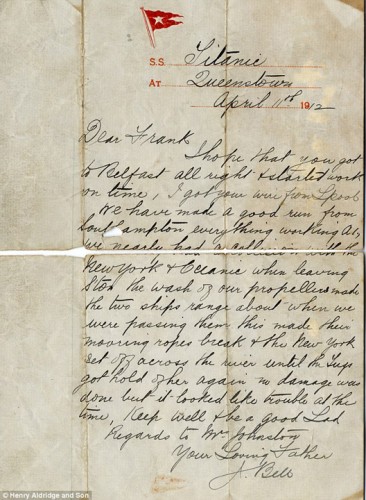 S.S. Titanic
AT Queenstown
April 11th 1912
Dear Frank
I hope that you got
to Belfast all right & started work
on time, I got your wire from Lpool
We have made a good run from
Southampton everything working A1,
we nearly had a collision with the
New York & Oceanic when leaving
Ston the wash of our propellers made
the two ships range about when we
were passing them this made their
mooring ropes break & the New York
set off across the river until the Tugs
got hold of her again no damage was
done but it looked like trouble at the
time, Keep well & be a good Lad
Regards to Mr Johnston
Your Loving Father
J. Bell
© Henry Aldridge and Son